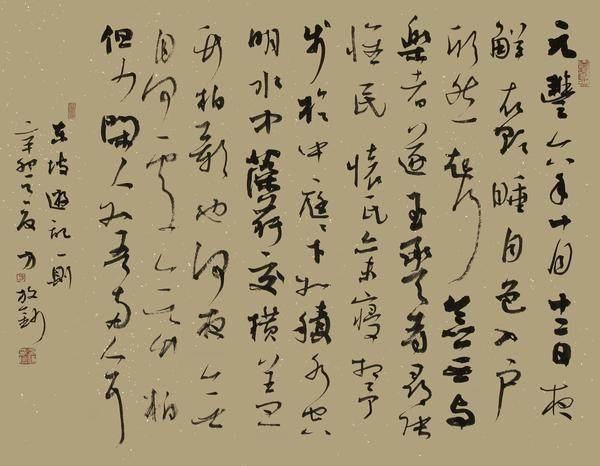 元豐六年十月十二日夜
解衣欲睡月色入户
欣然起行念無与
樂者遂至承天寺尋張
懷民懷民亦未寢相与
步於中庭〻下如積水空
明水中藻荇交横盖
竹柏影也何夜無
月何處無竹柏
但少閑人如吾兩人耳
东坡遊記一則
辛卯之夏